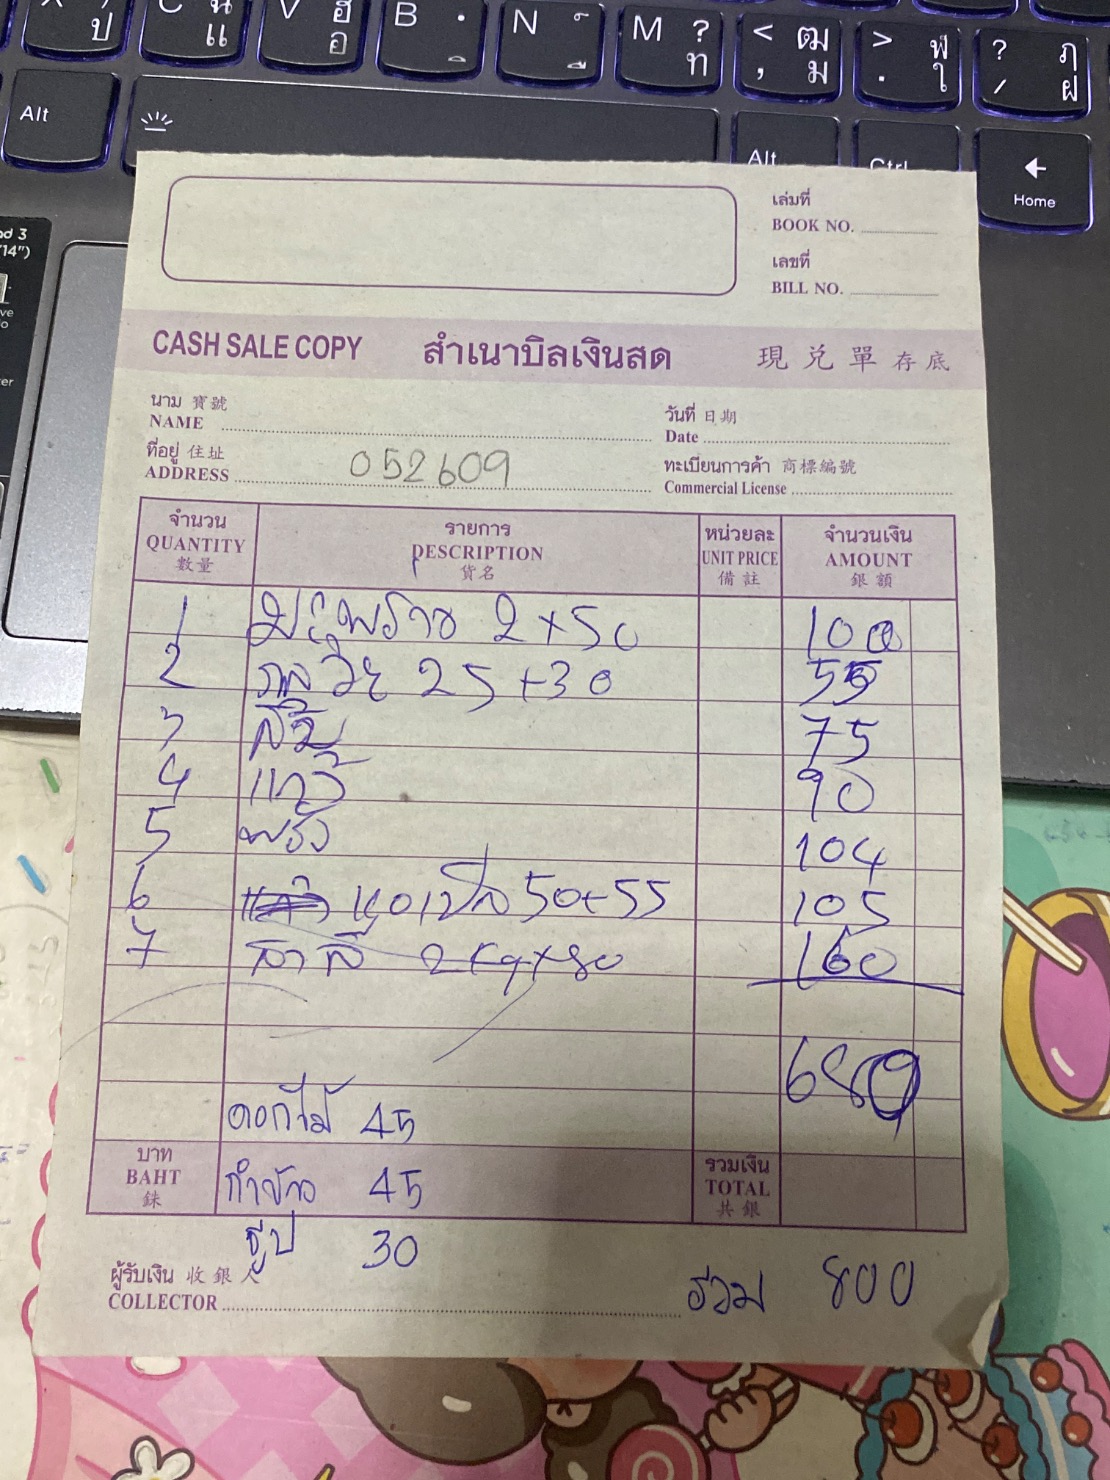 ป
แ
V ฮ
อ
B
N
M ?
ท
< ฒ
, ม
> ฬ
. ใ
? ฦ
/ ฝ
Alt
Alt
Ctrl
Home
14")
เล่มที่
BOOK NO.
เลขที่
BILL NO.
CASH SALE COPY สำเนาบิลเงินสด 現兌單存底
นาม 寶號
NAME
วันที่ 日期
Date
ที่อยู่ 住址
ADDRESS 052609
ทะเบียนการค้า 商標編號
Commercial License
จำนวน รายการ หน่วยละ จำนวนเงิน
QUANTITY DESCRIPTION UNIT PRICE AMOUNT
數量 貨名 備註 銀額
1 มะพร้าว 2x50 100
2 25+30 55
3 ส้ม 75
4 90
5 ฝรั่ง 104
6 50+55 105
7 สาลี่ 2kgx80 160
689
ดอกไม้ 45
บาท รวมเงิน
BAHT TOTAL
銖 共銀
45
ธูป 30
ผู้รับเงิน 收銀人
COLLECTOR
รวม 800